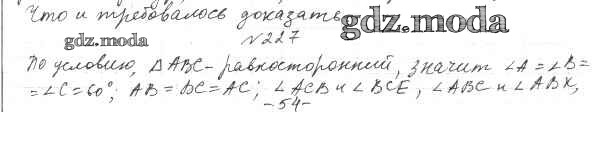 Что и требовалось доказать
gdz.moda
gdz.moda
№227
По условию, ΔABC - равносторонний, значит ∠A = ∠B =
= ∠C = 60°; AB = BC = AC; ∠ACB и ∠BCE, ∠ABC и ∠ABK,
-54-